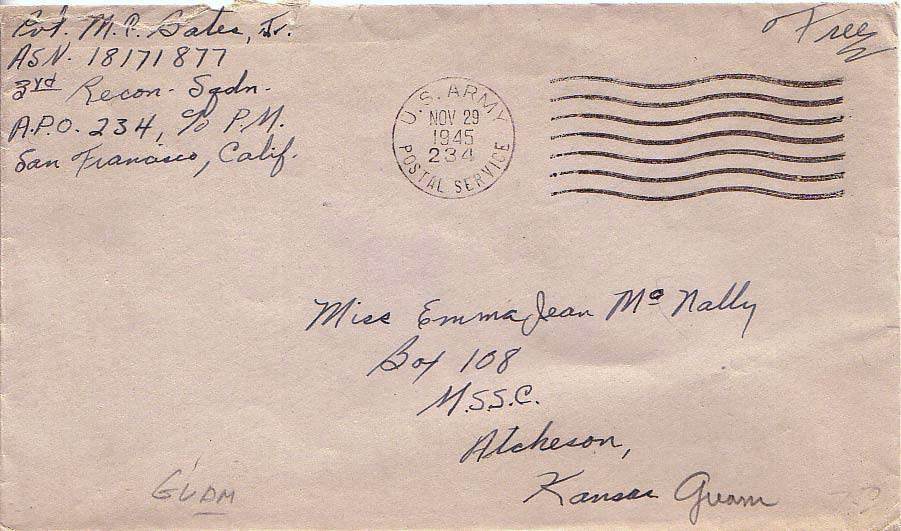 Cpl. M. C. Gates, Jr.
ASN. 18171877
3rd Recon. Sqdn.
A.P.O. 234, c/o P.M.
San Francisco, Calif.
Free
U.S. ARMY
NOV 29
1945
234
POSTAL SERVICE
Miss Emma Jean McNally
Box 108
M.S.S.C.
Atcheson,
Kansas Guam
GUAM